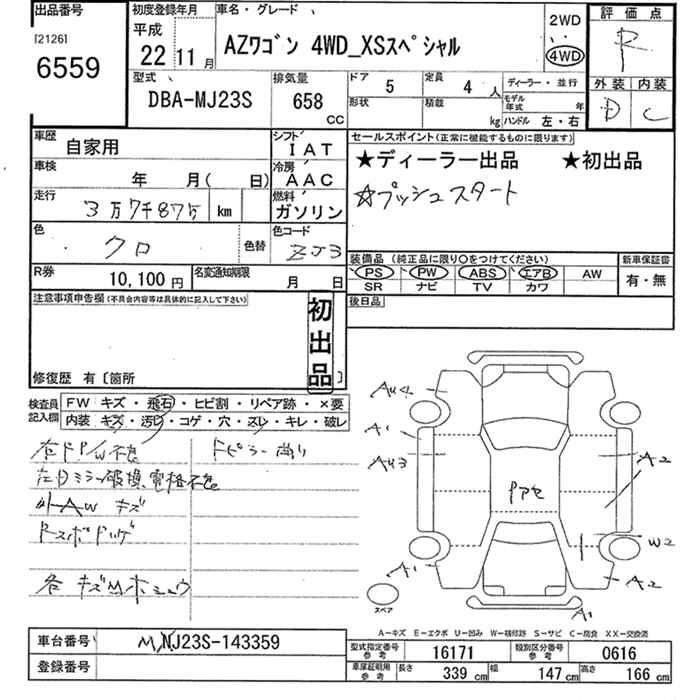 出品番号
[2126]
6559
初度登録年月
平成
22 11月
車名・グレード
AZワゴン 4WD_XSスペシャル
2WD
4WD
評価点
R
外装 内装
D C
型式
DBA-MJ23S
排気量
658
CC
ドア 5
定員 4 人
形状
積載 kg
ディーラー・並行
モデル年式 年
ハンドル 左・右
車歴 自家用
シフト IAT
車検 年 月( 日)
冷房 AAC
走行 3万7千875 km
燃料 ガソリン
色 クロ
色替
色コード ZJ3
R券 10,100円
名変通知期限 月 日
セールスポイント(正常に機能するものに限ります)
★ディーラー出品 ★初出品
☆プッシュスタート
装備品 (純正品に限り○をつけてください)
新車保証書
PS PW ABS エアB AW
SR ナビ TV カワ
有・無
後日品
注意事項申告欄(不具合内容等は具体的に記入して下さい)
初出品
修復歴 有〔箇所 〕
検査員記入欄
FW キズ・飛石・ヒビ割・リペア跡・×要
内装 キズ・汚レ・コゲ・穴・スレ・キレ・破レ
右ドP/W不良
左ドミラー破損、電格不良
外AW キズ
各キズMホシュウ
AU4
A1
AU3
A1
A2
W2
A2
A1
スペア
A-キズ E-エクボ U-凹み W-補修跡 S-サビ C-腐食 XX-交換済
車台番号 MJ23S-143359
登録番号
型式指定番号 参考 16171
類別区分番号 参考 0616
車庫証明用 参考 長さ 339 cm 幅 147 cm 高さ 166 cm